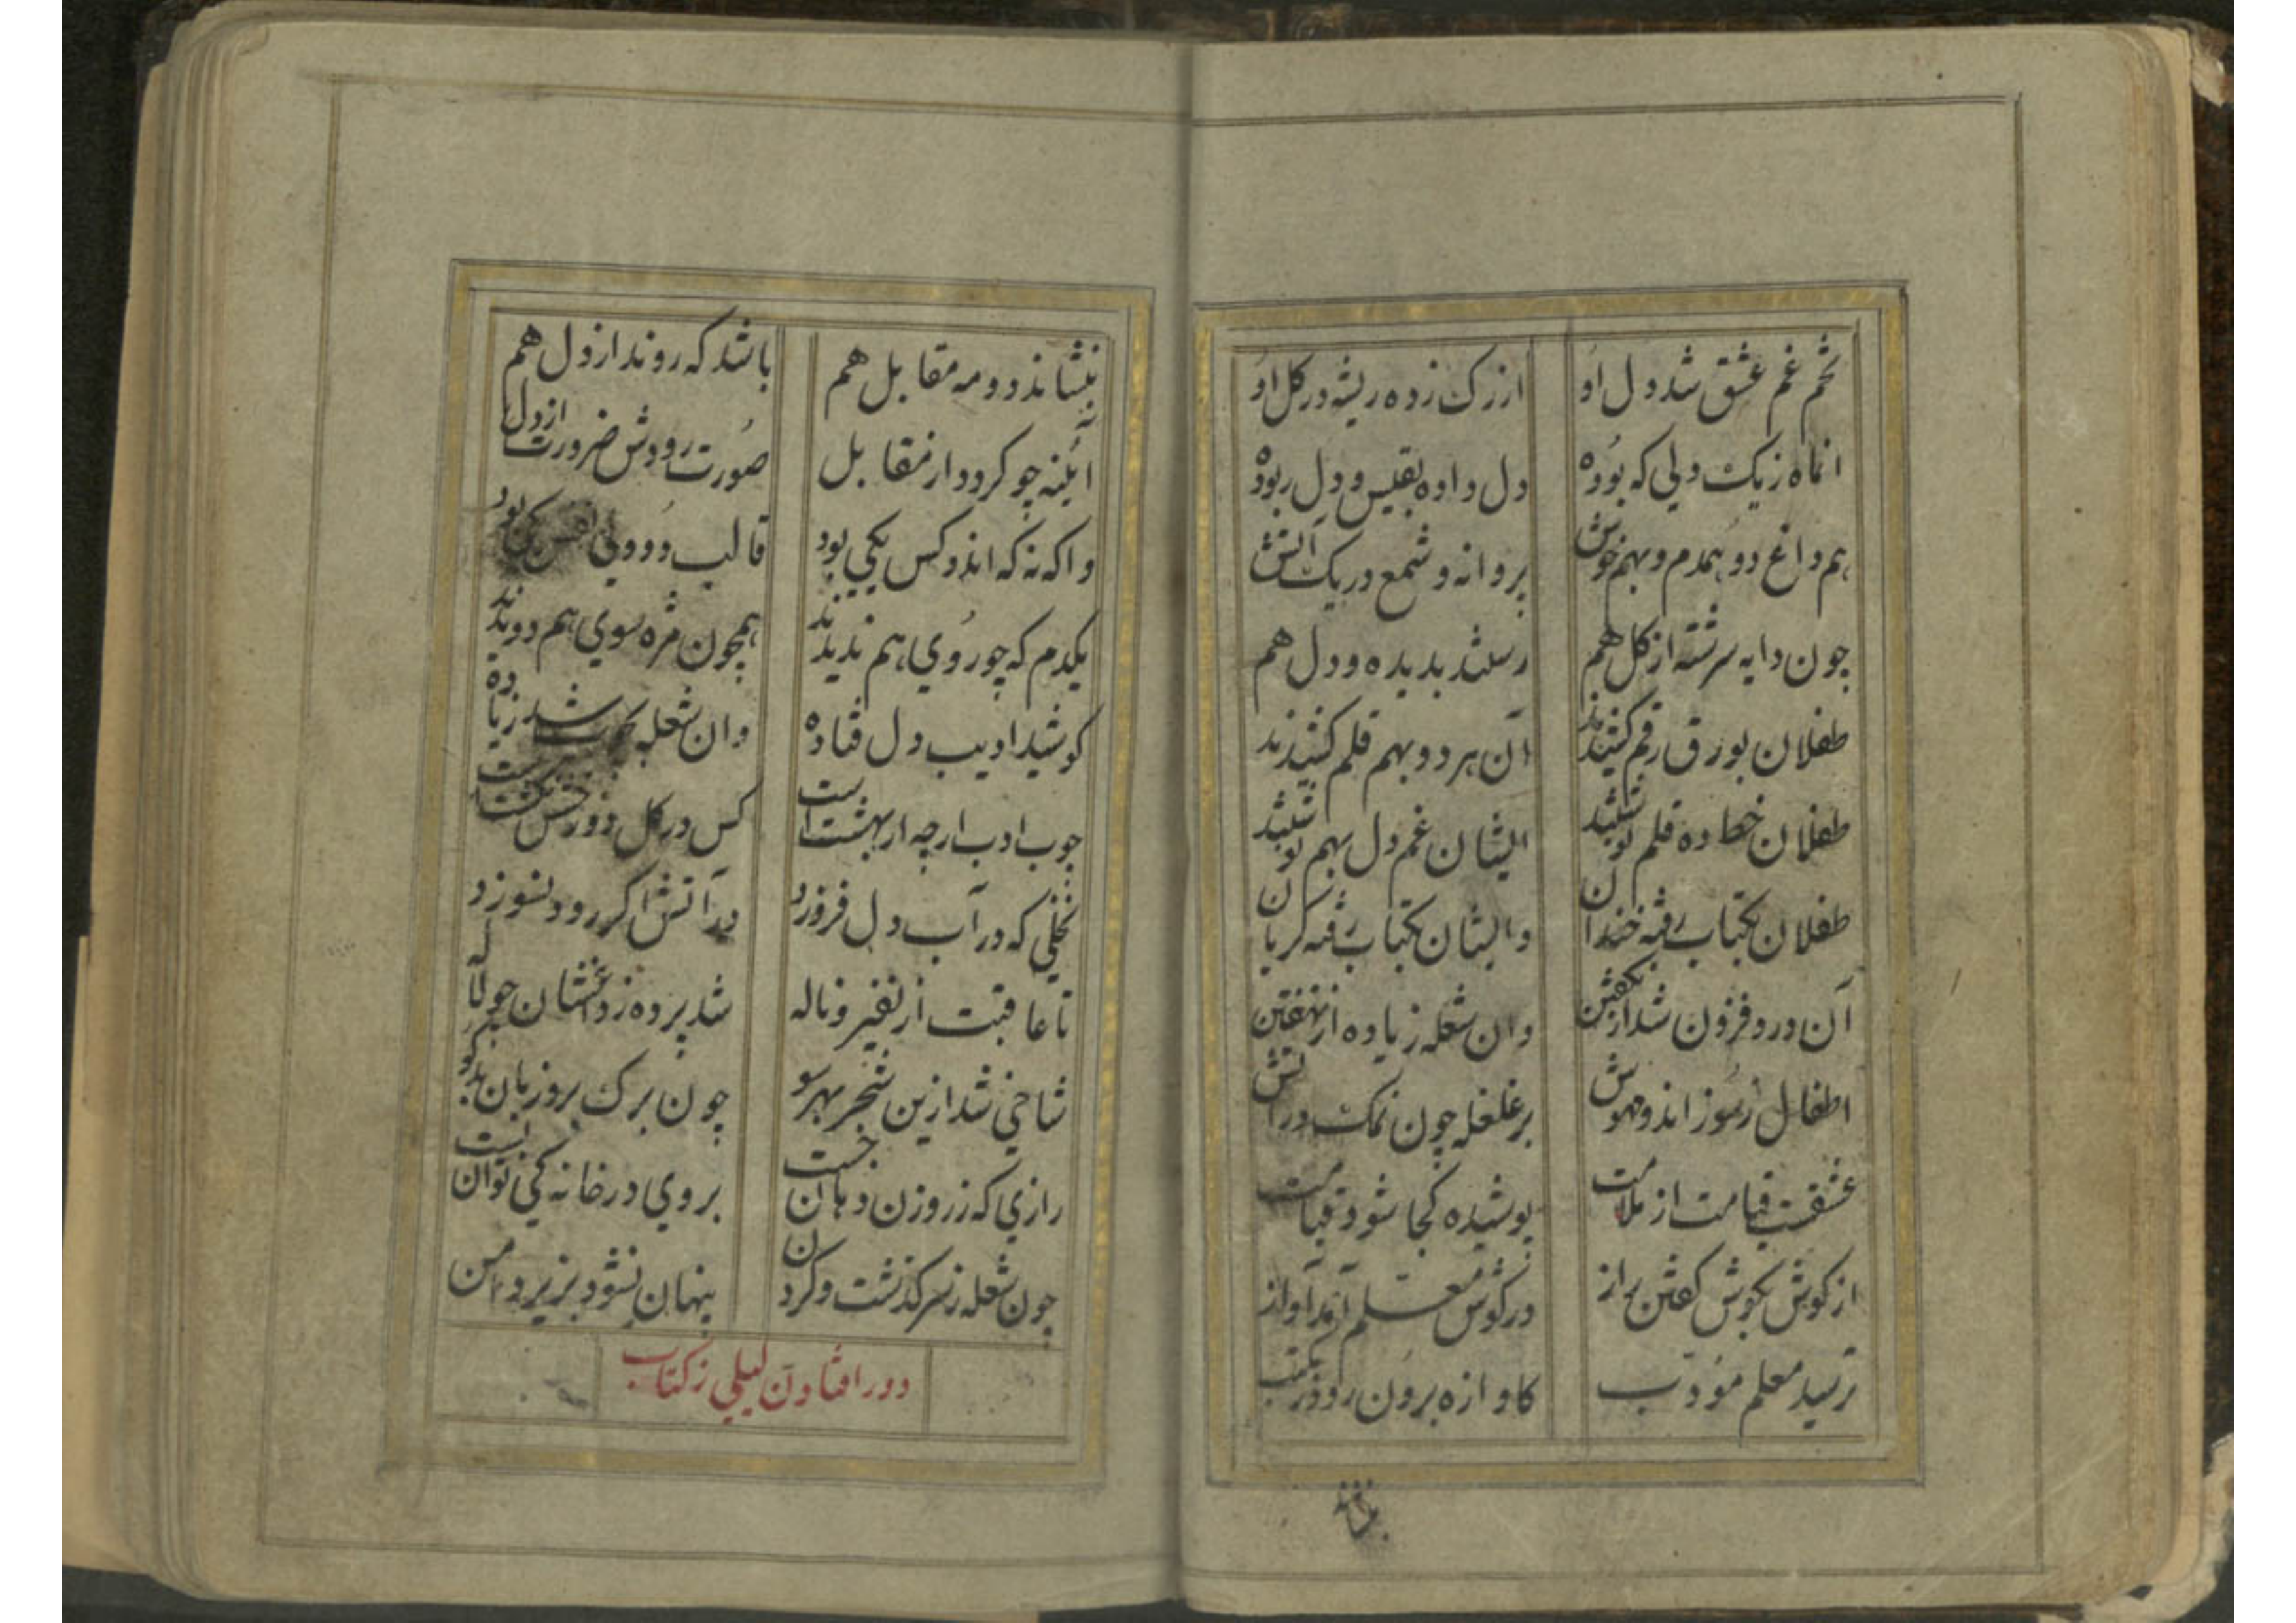 تخم غم عشق شد دل او از رک زده ریشه در کل او
اما ه زیک دلی که بوده دل داده بقیس و دل ربوده
هم داغ دو همدم و بهم خوش پروانه و شمع در یک آتش
چون دایه سرشته از کل هم رستند بدیده و دل هم
طفلان بورق رقم کشیدند آن هر دو بهم قلم کشیدند
طفلان خط ده قلم نوشتند ایشان غم دل بهم نوشتند
طفلان بکتاب رفته خندان وایشان بکتاب رفته کریان
آن درد فزون شد از نکفتن وان شعله زیاده از نهفتن
اطفال رموز اندو مهوش بر غلغله چون نمک در آتش
عشقست قیامت از ملامت پوشیده کجا شود قیامت
از کوش بکوش کفتن راز در کوش معلم آمد آواز
ترسید معلم مؤدب کاوازه برون رود ز مکتب
بنشاند
بنشاند دو مه مقابل هم باشد که روند از دل هم
آیینه چو کردد از مقابل صورت رودش ضرورت از دل
واکه نه که اندو کس یکی بود قالب دو ولی
یکدم که چو روی هم ندیدند همچون مژه سوی هم دویدند
کوشید ادیب دل فتاده وان شعله شد زیاده
چوب ادب ارچه از بهشت است کس در کل دوزخش
نخلی که در آب دل فروزد در آتش اکر رود نسوزد
تا عاقبت از نفیر و ناله شد پرده ز دغشان چو لاله
شاخی شد ازین شجر بهر سو چون برک بر و زبان بدکو
رازی که ز روزن دهان جست بر وی در خانه کی توان بست
چون شعله ز سر کذشت و کردن پنهان نشود بزیر دامن
دور افتادن لیلی ز کتاب